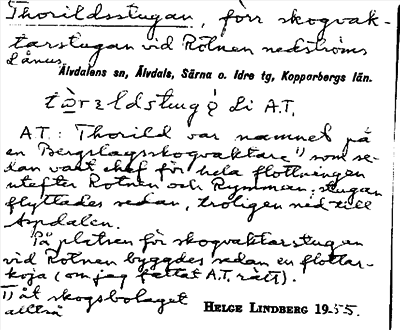 Thorildsstugan, förr skogvak-
tarstugan vid Rötnen nedströms
Lånus
Älvdalens sn, Älvdals, Särna o. Idre tg, Kopparbergs län.
Li A.T.
A.T.: Thorild var namnet på
en Bergslagsskogvaktare 1) som se-
dan varit chef för hela flottningen
utefter Rotnen och Rymman; stugan
flyttades sedan, troligen ned till
Åspdalen.
På platsen för skogvaktarstugan
vid Rotnen byggdes sedan en flottar-
koja (om jag fattat A.T. rätt).
1) åt skogsbolaget
alltså
HELGE LINDBERG 1955.